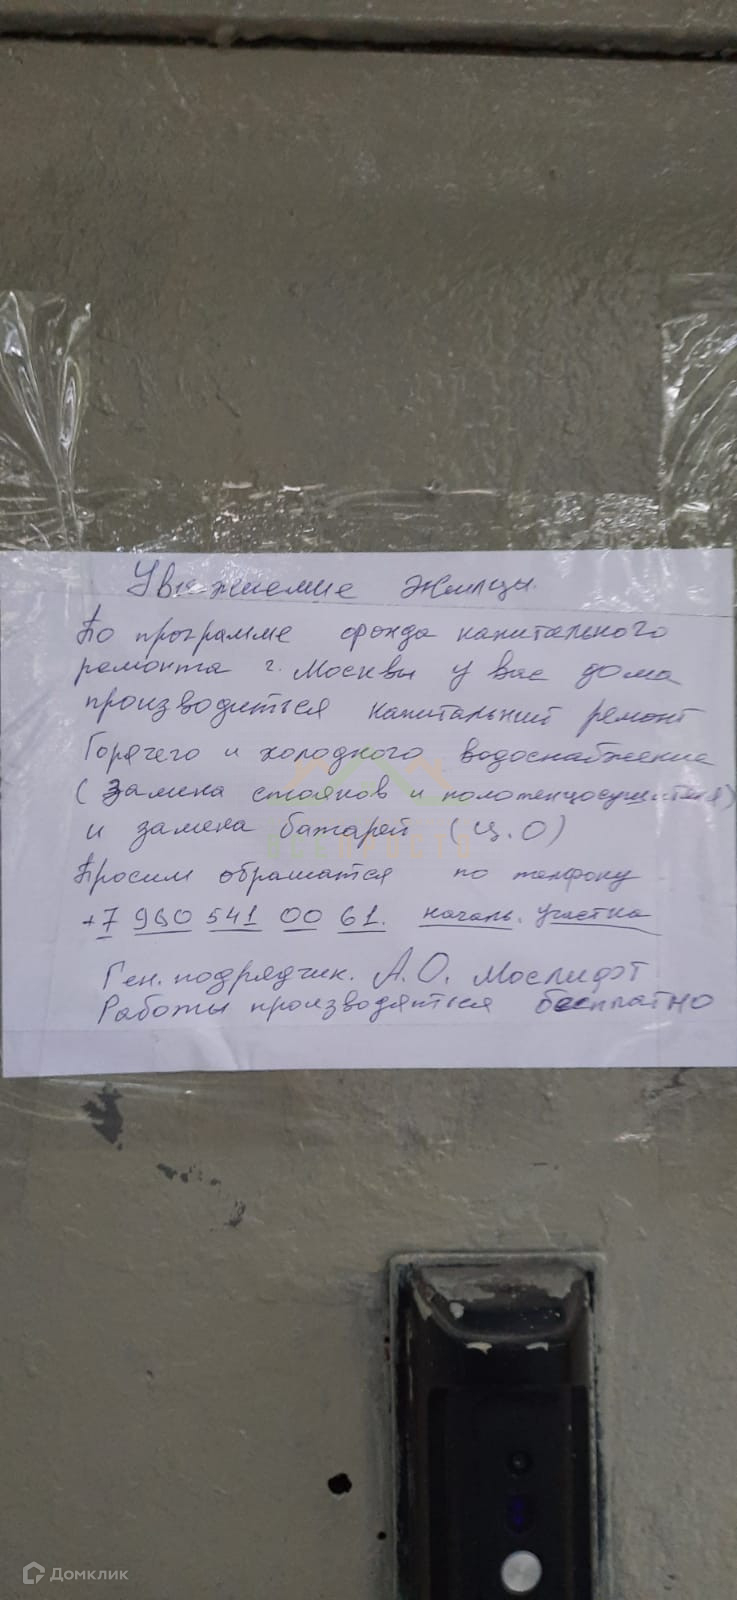 Уважаемие жилцы.
По программе фонда капитального
ремонта г. Москвы у вас дома
производиться капитальний ремонт
Горячего и холодного водоснабжение
(Замена стояков и полотенцосушителя)
и замена батарей (ц.О)
Просим обращатся по телфону
+7 980 541 00 61. началь. участка
Ген. подрядчик. А.О. Мослифт
Работы производяться бесплатно
Домклик